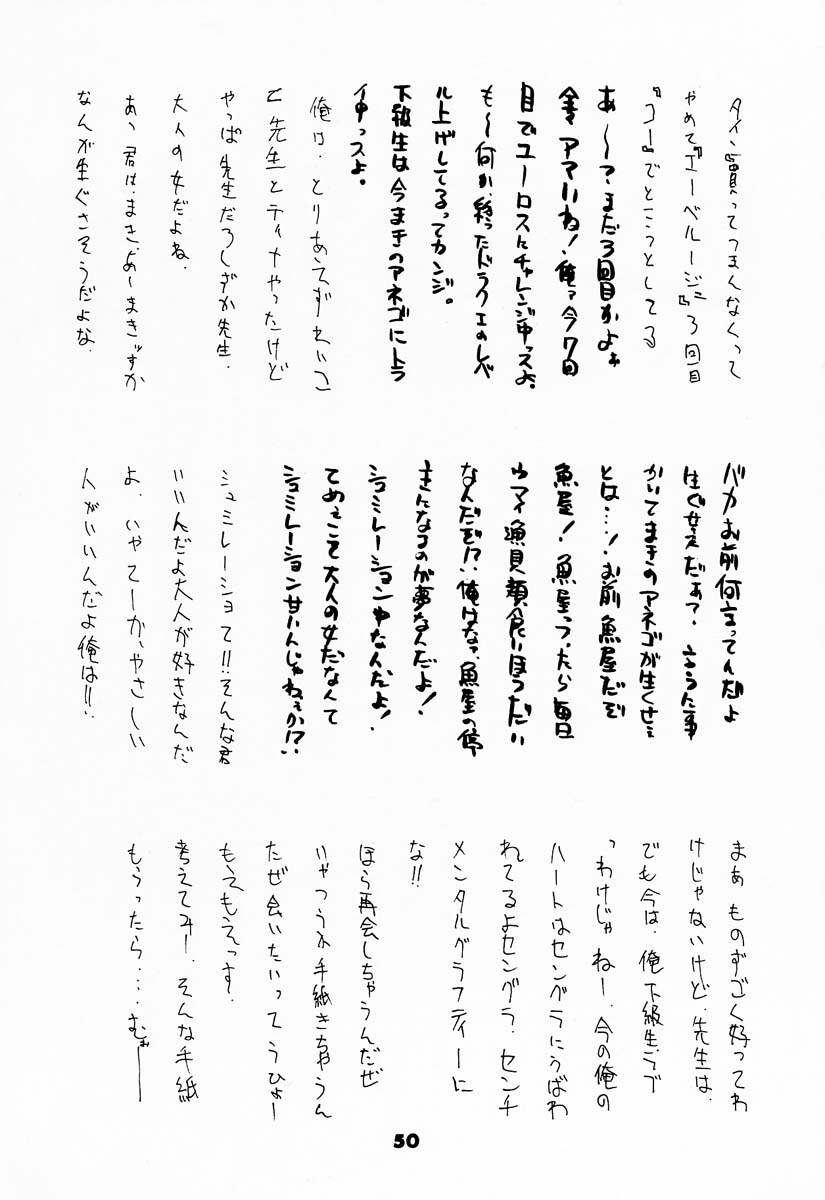 タイン買ってつまんなくって
やめて『エーベルージュ』3回目
『コー』でところってしてる
あ〜?まだ3回目かよぉ
全々アマいね!俺ァ今7回
目でユーロスにチャレンジ中っスよ。
も〜何か、終ったドラクエのレベ
ル上げしてるってカンジ。
下級生は今まきのアネゴにトラ
イ中っスよ。
俺は、とりあえずれいこ
先生とティナやったけど
やっぱ先生だろしずか先生。
大人の女だよね。
あ、君は、まき、ぷ〜まきッすか
なんが生ぐさそうだよな。
バカお前何言ってんだよ
生ぐせえだぁ?言うに事
かいてまきのアネゴが生くせえ
とは…!お前魚屋だぞ
魚屋!魚屋っつったら毎日
ウマイ漁貝類食いほうだい
なんだぞ!?俺はなァ、魚屋の停
主になるのが夢なんだよ!
シュミレーション中なんだよ!
てめぇこそ大人の女だなんて
シュミレーション甘いんじゃねぇか!?
シュミレーショて!!そんな君
いいんだよ大人が好きなんだ
よ、いやてーか、やさしい
人がいいんだよ俺は!!
まあ ものすごく好ってわ
けじゃないけど、先生は、
でも今は、俺下級生って
っわけじゃねー、今の俺の
ハートはセングラにうばわ
れてるよセングラ、センチ
メンタルグラフティーに
な!!
ほら再会しちゃうんだぜ
いやつうか手紙きちゃうん
だぜ会いたいってうひょー
もえもえっす。
考えてみー、そんな手紙
もらったら…むぉー
50